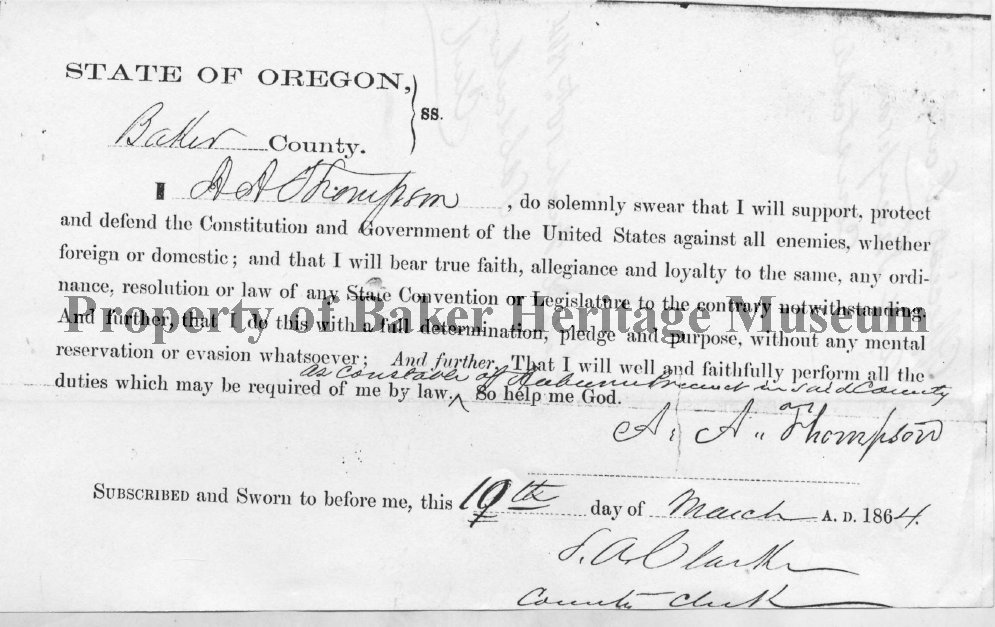 STATE OF OREGON,
ss.
Baker County.
I A A Thompson, do solemnly swear that I will support, protect
and defend the Constitution and Government of the United States against all enemies, whether
foreign or domestic; and that I will bear true faith, allegiance and loyalty to the same, any ordi-
nance, resolution or law of any State Convention or Legislature to the contrary notwithstanding.
Property of Baker Heritage Museum
And further, that I do this with a full determination, pledge and purpose, without any mental
reservation or evasion whatsoever; And further, That I will well and faithfully perform all the
as Constable of Auburn Precinct in said County
duties which may be required of me by law. ^ So help me God.
A. A. Thompson
SUBSCRIBED and Sworn to before me, this 19th day of March A. D. 1864.
S. A. Clarke
County Clerk